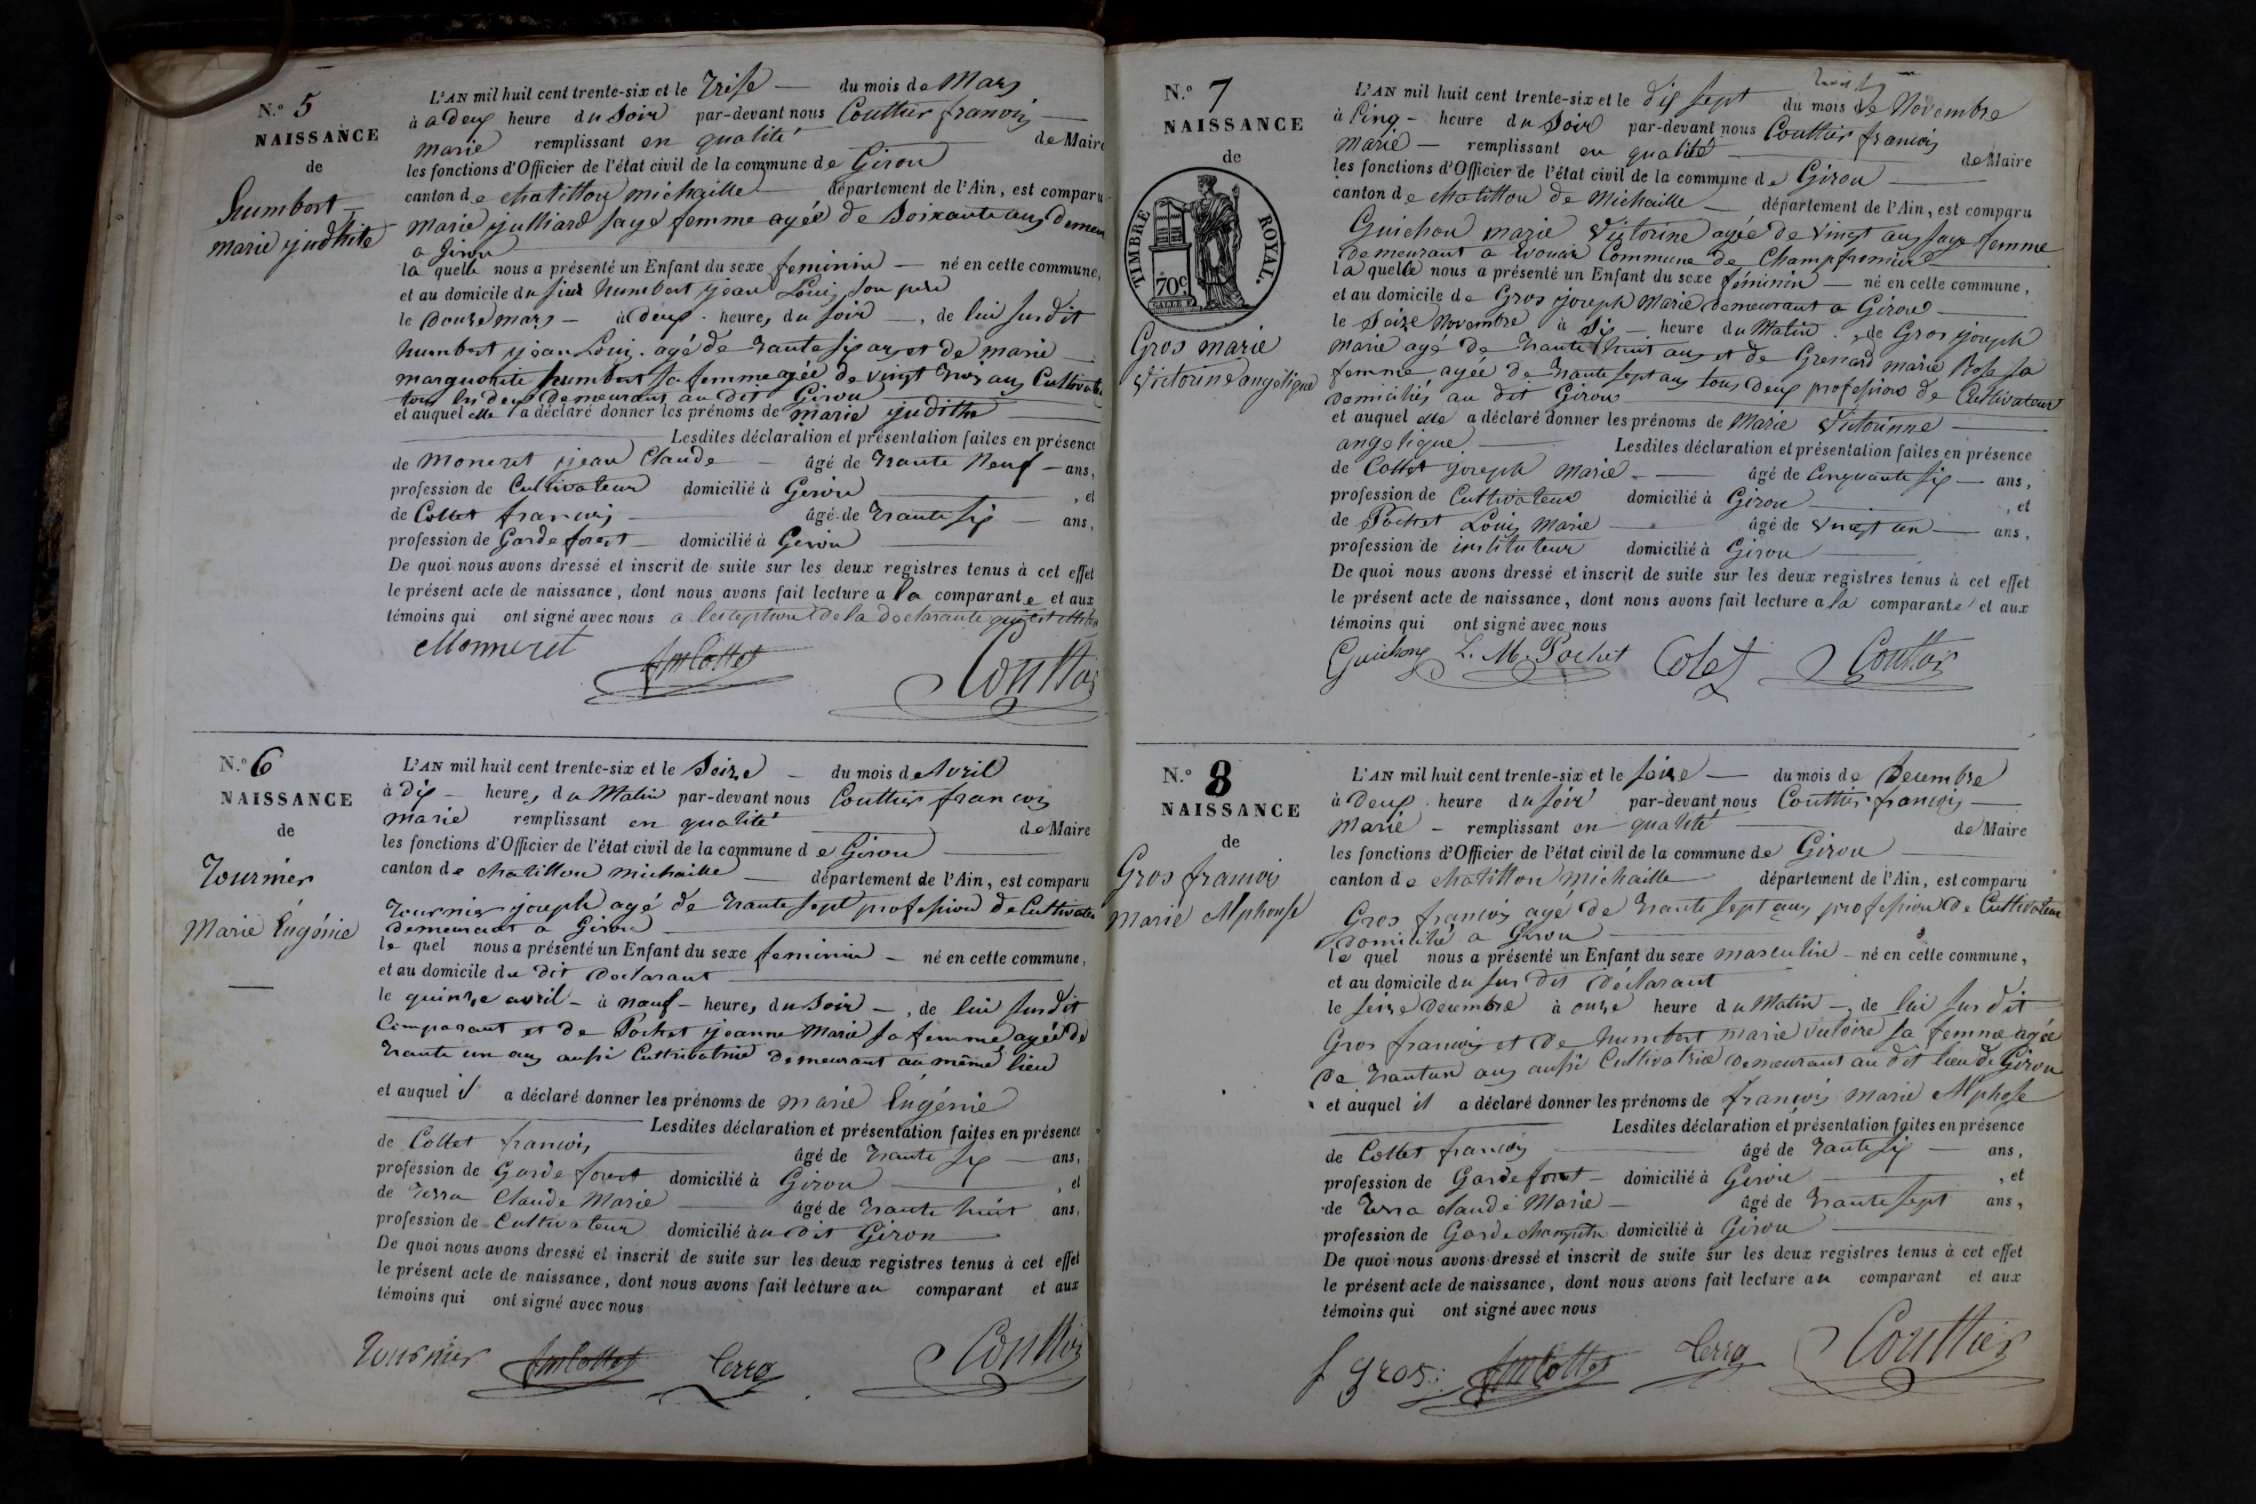 N.º 5
NAISSANCE
de
humbert
marie judhite
L'AN mil huit cent trente-six et le Treise — du mois de Mars
à a deux heure du Soir par-devant nous Couttier francois
marie remplissant en qualité — de Maire
les fonctions d'Officier de l'état civil de la commune de Giron
canton de chatillon michaille — département de l'Ain, est comparu
marie julliard sage femme agée de Soixante ans demeu
a Giron
la quelle nous a présenté un Enfant du sexe feminin — né en cette commune,
et au domicile du sieur humbert jean Louis son pere
le Douze mars — à deux heures du soir —, de lui susdit
humbert jean Louis agé de trante six ans et de marie
marguerite humbert sa femme agée de vingt trois ans Cultivate
tous les deux demeurant au dit Giron
et auquel elle a déclaré donner les prénoms de marie judith
Lesdites déclaration et présentation faites en présence
de Moneret jean Claude — âgé de trante Neuf — ans,
profession de Cultivateur domicilié à Giron —, et
de Collet francois — âgé de trante six — ans,
profession de Garde forest — domicilié à Giron
De quoi nous avons dressé et inscrit de suite sur les deux registres tenus à cet effet
le présent acte de naissance, dont nous avons fait lecture a la comparante et aux
témoins qui ont signé avec nous a lexception de la declarante qui est
Monneret fm Collet Couttier
N.º 6
NAISSANCE
de
Tournier
Marie Eugénie
L'AN mil huit cent trente-six et le Seize — du mois de Avril
à dix — heures du Matin par-devant nous Couttier francois
marie remplissant en qualité — de Maire
les fonctions d'Officier de l'état civil de la commune de Giron
canton de chatillon michaille — département de l'Ain, est comparu
Tournier joseph agé de trante sept profession de Cultivateur
demeurant a Giron
le quel nous a présenté un Enfant du sexe feminin — né en cette commune,
et au domicile du dit Declarant
le quinze avril — à neuf — heures du Soir —, de lui susdit
Comparant et de Pochet jeanne Marie sa femme agée de
trante un ans aussi Cultivatrice demeurant au même lieu
et auquel il a déclaré donner les prénoms de marie Eugénie
Lesdites déclaration et présentation faites en présence
de Collet francois — âgé de trante six — ans,
profession de Garde forest domicilié à Giron —, et
de Terra Claude Marie — âgé de trante huit ans,
profession de Cultivateur domicilié au dit Giron
De quoi nous avons dressé et inscrit de suite sur les deux registres tenus à cet effet
le présent acte de naissance, dont nous avons fait lecture au comparant et aux
témoins qui ont signé avec nous
Tournier fm Collet Terra Couttier
N.º 7
NAISSANCE
de
TIMBRE ROYAL.
70c
Gros marie
Victorine angelique
L'AN mil huit cent trente-six et le dix sept du mois de Novembre
à Cinq — heure du Soir par-devant nous Couttier francois
Marie — remplissant en qualité — de Maire
les fonctions d'Officier de l'état civil de la commune de Giron
canton de chatillon de Michaille — département de l'Ain, est comparu
Guichon marie Victorine agée de vingt ans sage femme
demeurant a commune de Champfromier
la quelle nous a présenté un Enfant du sexe féminin — né en cette commune,
et au domicile de Gros joseph Marie demeurant a Giron
le Seize Novembre à Six — heure du Matin, de Gros joseph
marie agé de trante huit ans et de Grenard marie Rose sa
femme agée de trante sept ans tous deux profession de Cultivateur
domiciliés au dit Giron
et auquel elle a déclaré donner les prénoms de Marie Victorinne
angelique. — Lesdites déclaration et présentation faites en présence
de Collet joseph Marie — âgé de Cinquante six — ans,
profession de Cultivateur domicilié à Giron —, et
de Pochet Louis Marie — âgé de vingt un — ans,
profession de instituteur domicilié à Giron
De quoi nous avons dressé et inscrit de suite sur les deux registres tenus à cet effet
le présent acte de naissance, dont nous avons fait lecture a la comparante et aux
témoins qui ont signé avec nous
Guichon L. M. Pochet Colet Couttier
N.º 8
NAISSANCE
de
Gros francois
marie Alphonse
L'AN mil huit cent trente-six et le seize — du mois de Decembre
à Deux heure du soir par-devant nous Couttier francois
Marie — remplissant en qualité — de Maire
les fonctions d'Officier de l'état civil de la commune de Giron
canton de chatillon michaille département de l'Ain, est comparu
Gros francois agé de trante sept ans profession de Cultivateur
Domicilié a Giron
le quel nous a présenté un Enfant du sexe masculin — né en cette commune,
et au domicile du sus dit déclarant
le seize Decembre à onze heure du Matin —, de lui sus dit
Gros francois et de humbert marie victoire sa femme agée
de trantun ans aussi Cultivatrice demeurant au dit lieu de Giron
et auquel il a déclaré donner les prénoms de francois marie Alphose
Lesdites déclaration et présentation faites en présence
de Collet francois — âgé de trante six — ans,
profession de Garde forest — domicilié à Giron —, et
de Terra claude Marie — âgé de trante sept ans,
profession de Garde champetre domicilié à Giron
De quoi nous avons dressé et inscrit de suite sur les deux registres tenus à cet effet
le présent acte de naissance, dont nous avons fait lecture au comparant et aux
témoins qui ont signé avec nous
f gros fm Collet Terra Couttier